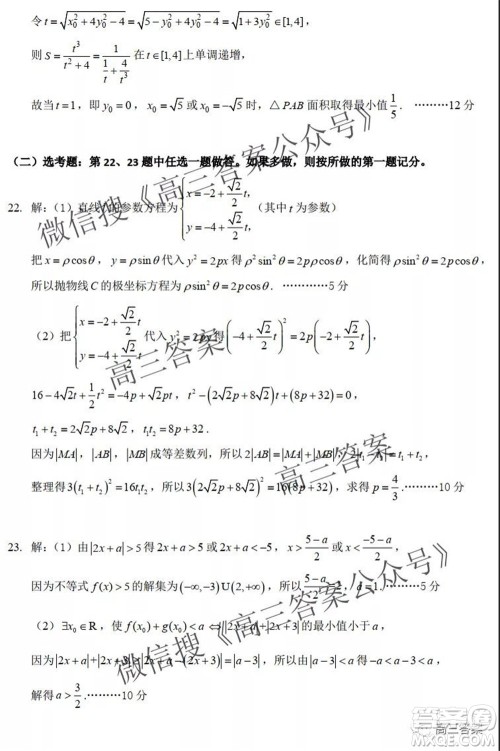 令 t=√(x₀²+4y₀²-4)=√(5-4y₀²+4y₀²... 
则 S=t³/(t²+4)=1/(1/t+4/t³) 在 t∈[1,4] 上单调递增，
故当 t=1，即 y₀=0，x₀=√5 或 x₀=-√5 时，△PAB 面积取得最小值 1/5．………12 分
（二）选考题：第 22、23 题中任选一题做答。如果多做，则按所做的第一题记分。
22. 解：（1）直线 l 的参数方程为 { x=-2+(√2/2)t, y=-4+(√2/2)t （其中 t 为参数）
把 x=ρcosθ，y=ρsinθ 代入 y²=2px 得 ρ²sin²θ=2pρcosθ，化简得 ρsin²θ=2pcosθ，
所以抛物线 C 的极坐标方程为 ρsin²θ=2pcosθ．…………5 分
（2）把 { x=-2+(√2/2)t, y=-4+(√2/2)t 代入 y²=2px 得 (-4+(√2/2)t)²=2p(-2+(√2/2)t)，
16-4√2t+(1/2)t²=-4p+√2pt，t²-(2√2p+8√2)t+(8p+32)=0，
t₁+t₂=2√2p+8√2，t₁t₂=8p+32．
因为|MA|，|AB|，|MB|成等差数列，所以 2|AB|=|MA|+|MB|，2|t₁-t₂|=|t₁+t₂|，
整理得 3(t₁+t₂)²=16t₁t₂，所以 3(2√2p+8√2)²=16(8p+32)，求得 p=4/3．………10 分
23. 解：（1）由|2x+a|>5 得 2x+a>5 或 2x+a<-5，x>(5-a)/2 或 x<(-5-a)/2，
因为不等式 f(x)>5 的解集为 (-∞,-3)∪(2,+∞)，所以 (5-a)/2=2，a=1．…………5 分
（2）∃x₀∈R，使 f(x₀)+g(x₀)<a⇔|2x+a|+|2x+3|的最小值小于 a，
因为|2x+a|+|2x+3|≥|2x+a-(2x+3)|=|a-3|，所以由|a-3|<a 得 -a<a-3<a，
解得 a>3/2．………10 分
微信搜《高三答案公众号》
高三答案
高三答案
微信搜《高三答案公众号》
高三答案